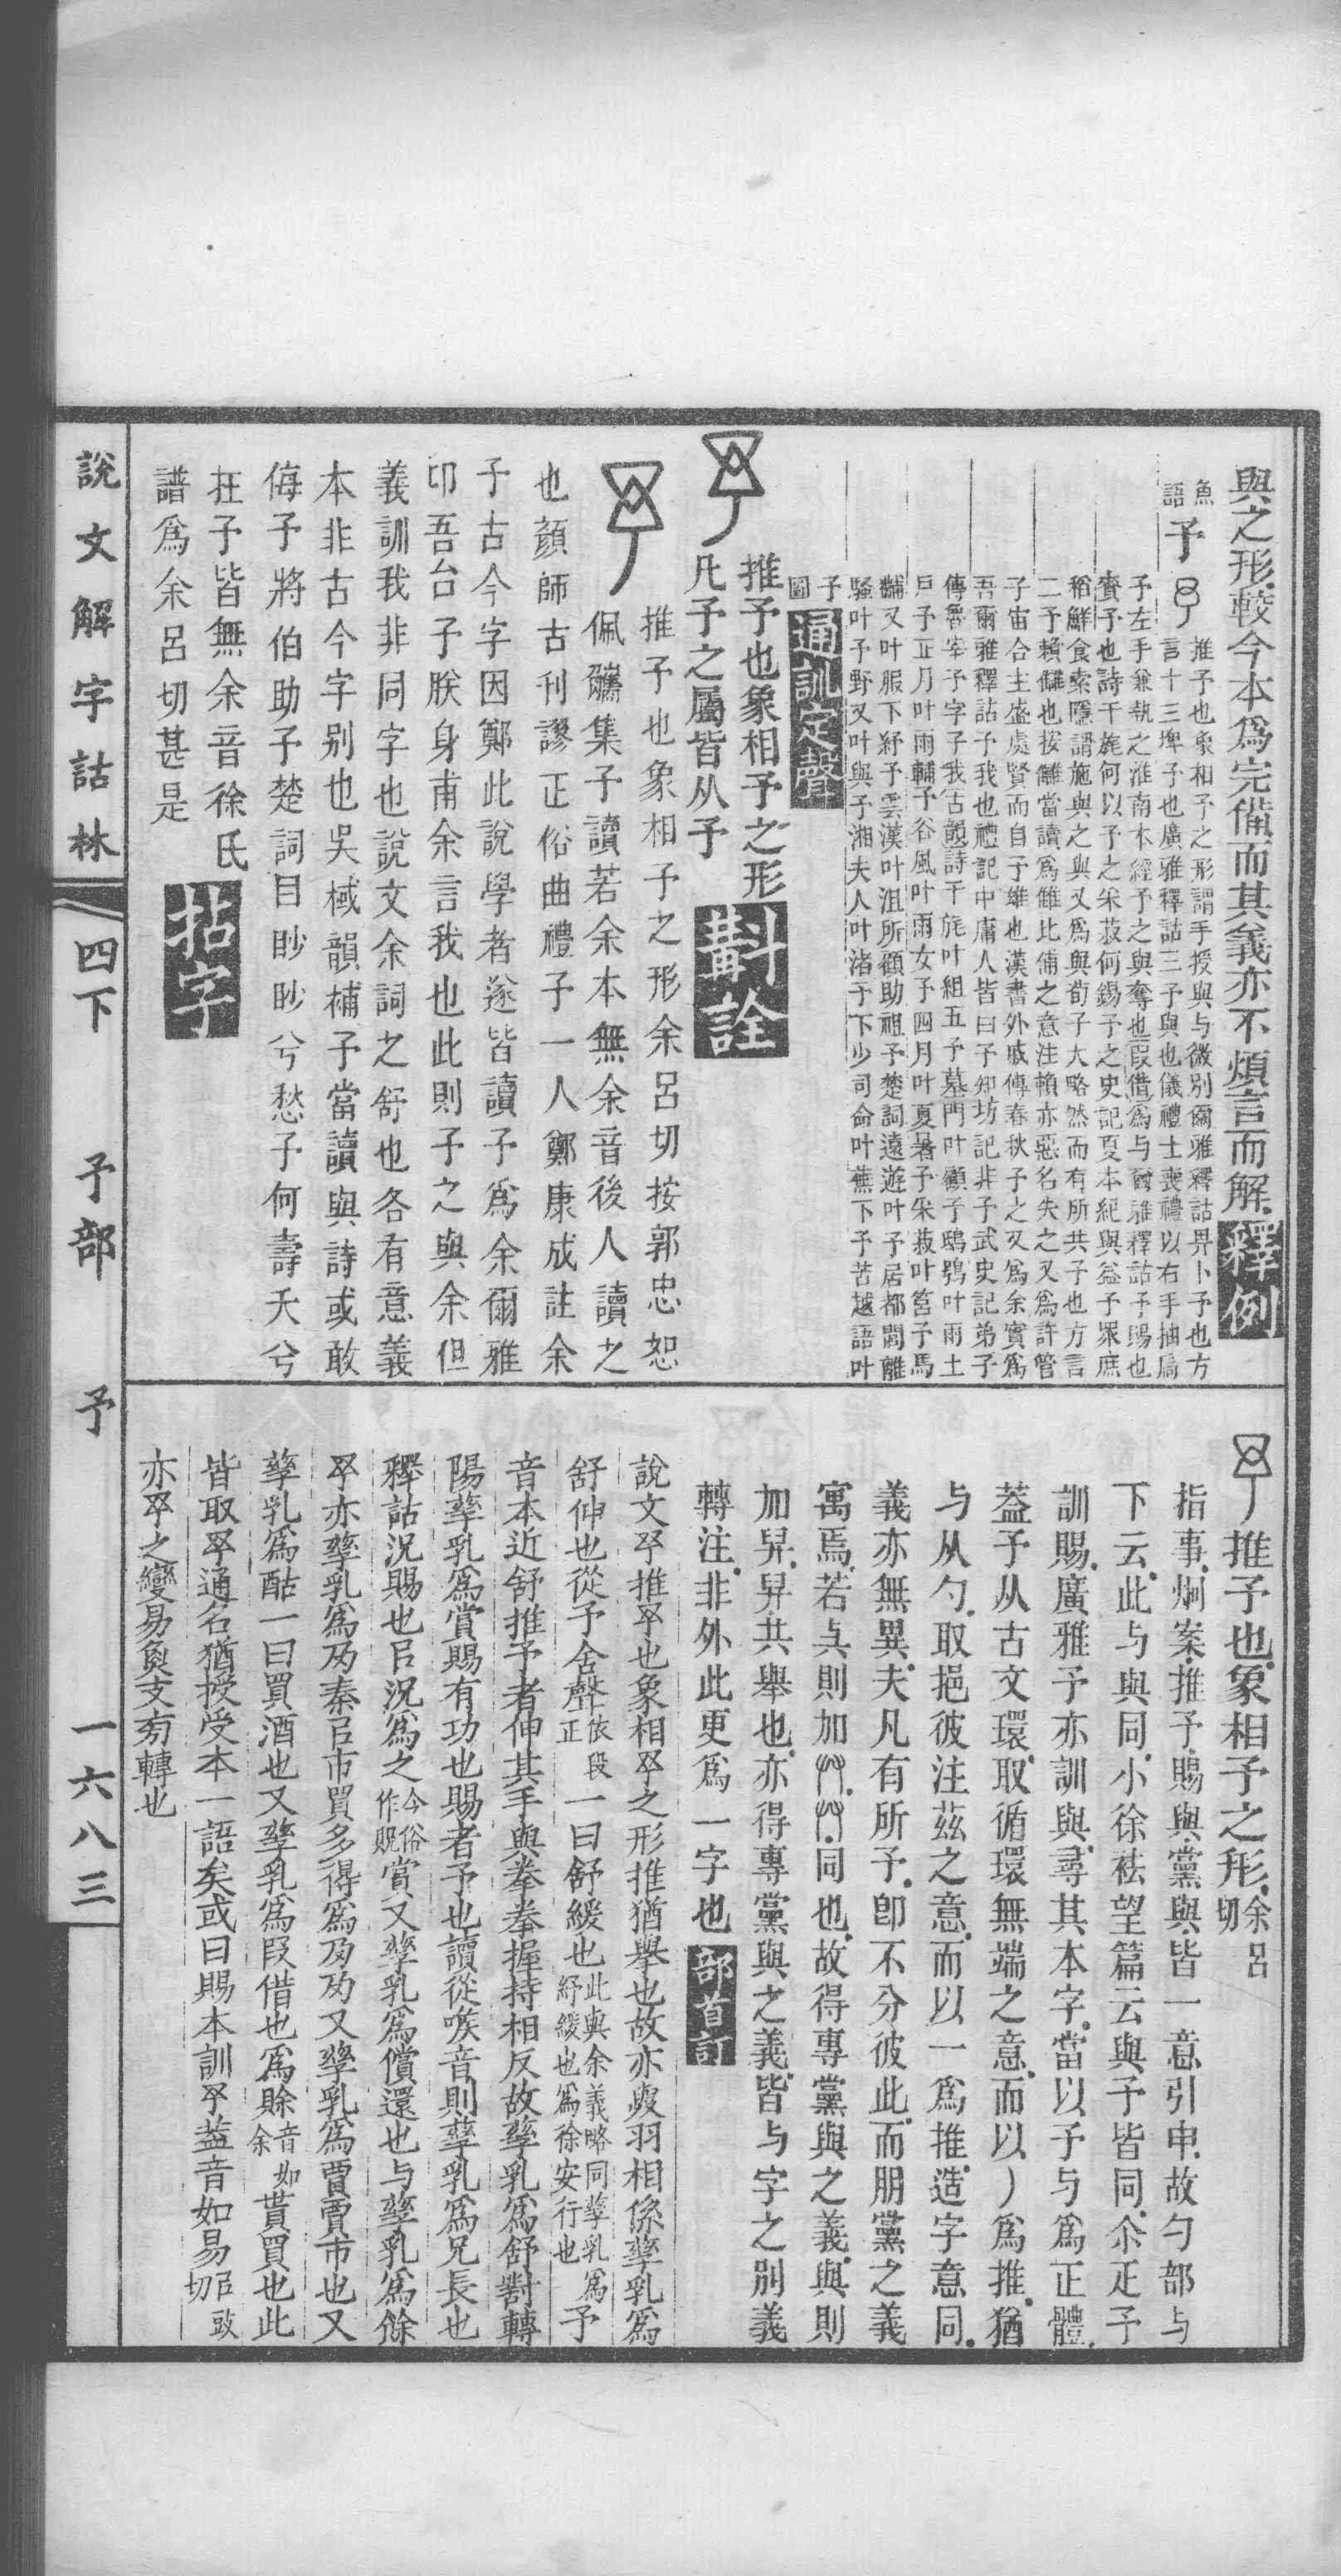 與之形較今本爲完備而其義亦不煩言而解釋例
魚語
予
推予也象相予之形謂手授與与微別爾雅釋詁畀卜予也方
言十三埤予也廣雅釋詁三予與也儀禮士喪禮以右手抽扃
予左手兼執之淮南本經予之與奪也叚借爲与爾雅釋詁予賜也
賚予也詩干旄何以予之采菽何錫予之史記夏本紀與益予眾庶
稻鮮食索隱謂施與之與又爲與荀子大略然而有所共予也方言
二予賴讎也按讎當讀爲雠比侑之意注賴亦惡名失之又爲許管
子宙合主盛處賢而自予雄也漢書外戚傳春秋予之又爲余實爲
吾爾雅釋詁予我也禮記中庸人皆曰予知坊記非予武史記弟子
傳魯宰予字子我古韻詩干旄叶組五予墓門叶顧予鴟鴞叶雨土
戶予正月叶雨輔予谷風叶雨女予四月叶夏暑予采菽叶筥予馬
黼又叶股下紓予雲漢叶沮所顧助祖予楚詞遠遊叶予居都閭離
騷叶予野又叶與予湘夫人叶渚予下少司命叶蕪下予苦越語叶
予圖通訓定聲
推予也象相予之形
凡予之屬皆从予斠詮
推予也象相予之形余呂切按郭忠恕
佩觿集予讀若余本無余音後人讀之
也顏師古刊謬正俗曲禮予一人鄭康成註余
予古今字因鄭此說學者遂皆讀予爲余爾雅
卬吾台予朕身甫余言我也此則予之與余但
義訓我非同字也說文余詞之舒也各有意義
本非古今字別也吳棫韻補予當讀與詩或敢
侮予將伯助予楚詞目眇眇兮愁予何壽夭兮
在予皆無余音徐氏
譜爲余呂切甚是
拈字
推予也象相予之形余呂切
指事炯案推予賜與黨與皆一意引申故勺部与
下云此与與同小徐袪望篇云與予皆同尒疋予
訓賜廣雅予亦訓與尋其本字當以予与爲正體
蓋予从古文環取循環無端之意而以丿爲推猶
与从勺取挹彼注茲之意而以一爲推造字意同
義亦無異夫凡有所予卽不分彼此而朋黨之義
寓焉若与則加𦥑𦥑同也故得專黨與之義與則
加舁舁共舉也亦得專黨與之義皆与字之別義
轉注非外此更爲一字也部首訂
說文予推予也象相予之形推猶舉也故亦變羽相係孳乳爲
舒伸也從予舍聲依段正一曰舒緩也此與余義略同孳乳爲紓緩也爲徐安行也予
音本近舒推予者伸其手與拳拳握持相反故孳乳爲舒對轉
陽孳乳爲賞賜有功也賜者予也讀從喉音則孳乳爲兄長也
釋詁況賜也㠯況爲之今俗作貺賞又孳乳爲償還也与孳乳爲餘
予亦孳乳爲夃秦㠯市買多得爲夃夃又孳乳爲賈賈市也又
孳乳爲酤一曰買酒也又孳乳爲叚借也爲賒音如余貰買也此
皆取予通名猶授受本一語矣或曰賜本訓予蓋音如易㠯豉切
亦予之變易魚支旁轉也
說文解字詁林 四下 予部 予 一六八三